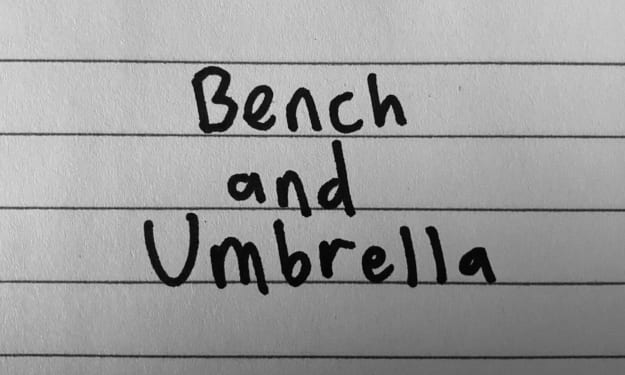 Bench
and
Umbrella